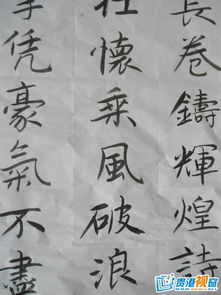 長卷鑄輝煌詩
懷乘風破浪
凭豪氣不盡
贵港视窗